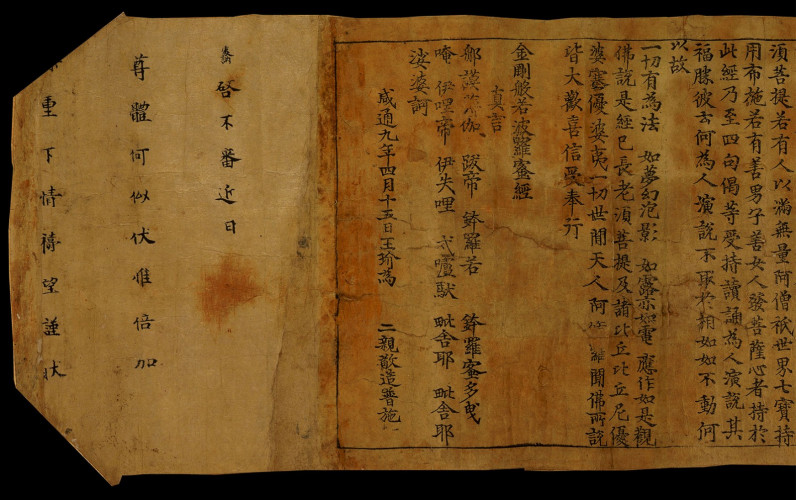 須菩提若有人以滿無量阿僧祇世界七寶持
用布施若有善男子善女人發菩薩心者持於
此經乃至四句偈等受持讀誦為人演說其
福勝彼云何為人演說不取於相如如不動何
以故
一切有為法 如夢幻泡影 如露亦如電 應作如是觀
佛說是經已長老須菩提及諸比丘比丘尼優
婆塞優婆夷一切世間天人阿 羅聞佛所說
皆大歡喜信受奉行
金剛般若波羅蜜經
真言
那謨 伽 跋帝 鉢羅若 鉢羅蜜多曳
唵 伊哩帝 伊失哩 戍嚧馱 毗舍耶 毗舍耶
娑婆訶
咸通九年四月十五日王玠為 二親敬造普施
啓不審近日
尊體何似伏惟倍加
重下情禱望謹狀